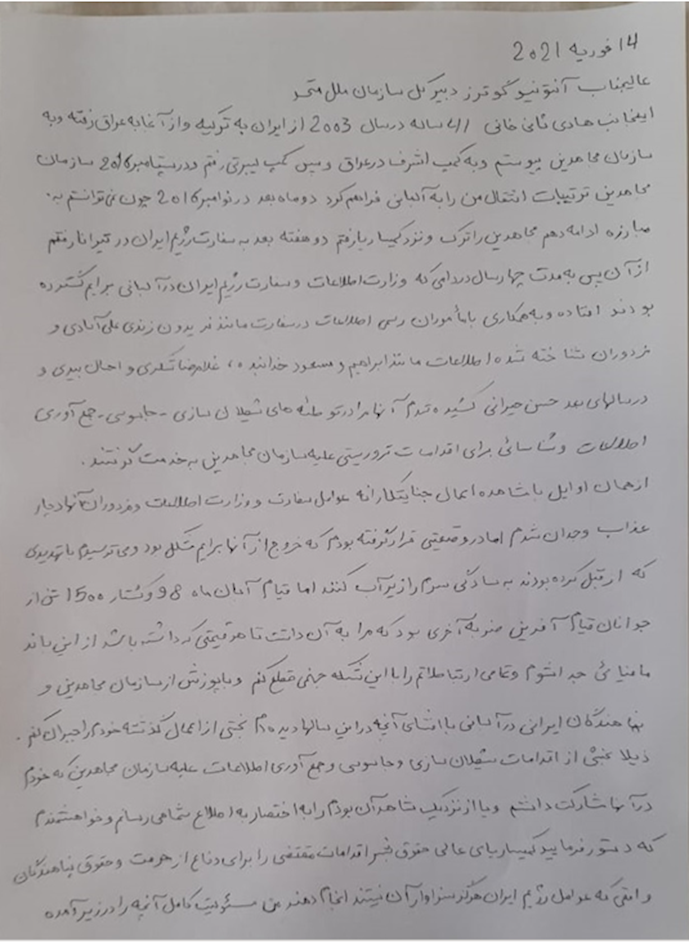 14 فوریه 2021
عالیجناب آنتونیو گوترز دبیر کل سازمان ملل متحد
اینجانب هادی ثانی خانی 41 ساله در سال 2003 از ایران به ترکیه و از آنجا به عراق رفته و به
سازمان مجاهدین پیوستم و به کمپ اشرف در عراق و سپس کمپ لیبرتی رفتم و در سپتامبر 2016 سازمان
مجاهدین ترتیبات انتقال من را به آلبانی فراهم کرد دو ماه بعد در نوامبر 2016 چون نمی توانستم به
مبارزه ادامه دهم مجاهدین را ترک و نزد کمیساریا رفتم دو هفته بعد به سفارت رژیم ایران در تیرانا رفتم
از آن پس به مدت چهار سال در دامی که وزارت اطلاعات و سفارت رژیم ایران در آلبانی برایم گسترده
بودند افتاده و به همکاری با مأموران رسمی اطلاعات در سفارت مانند فریدون زندی علی آبادی و
مزدوران شناخته شده اطلاعات مانند ابراهیم و مسعود خدابنده، غلامرضا شکری و احسان بیدی و
در سالهای بعد حسن حیرانی کشیده شدم آنها مرا در توطئه های شیطان سازی - جاسوسی - جمع آوری
اطلاعات و شناسائی برای اقدامات تروریستی علیه سازمان مجاهدین به خدمت گرفتند.
از همان اوایل با مشاهده اعمال جنایتکارانه عوامل سفارت و وزارت اطلاعات و مزدوران آنها دچار
عذاب وجدان شدم اما در وضعیتی قرار گرفته بودم که خروج از آنها برایم مشکل بود و می ترسیدم با تهدیدی
که از قبل کرده بودند به سادگی سرم را زیر آب کنند اما قیام آبان ماه 98 و کشتار 1500 تن از
جوانان قیام آفرین ضربه آخری بود که مرا به آن داشت تا هر قیمتی که داشته باشد از این باند
مافیائی جدا شوم و تمامی ارتباطاتم را با این شبکه جهنمی قطع کنم و با پوزش از سازمان مجاهدین و
پناهندگان ایرانی در آلبانی با افشای آنچه در این سالها دیده ام بخشی از اعمال گذشته خودم را جبران کنم.
ذیلا بخشی از اقدامات شیطان سازی و جاسوسی و جمع آوری اطلاعات علیه سازمان مجاهدین که خودم
در آنها مشارکت داشتم و یا از نزدیک شاهد آن بودم را به اختصار به اطلاع شما می رسانم و خواهشمندم
که دستور فرمایید کمیساریای عالی حقوق بشر اقدامات مقتضی را برای دفاع از حرمت و حقوق پناهندگان
واقعی که عوامل رژیم ایران هرگز سزاوار آن نیستند انجام دهند من مسئولیت کامل آنچه را در زیر آمده